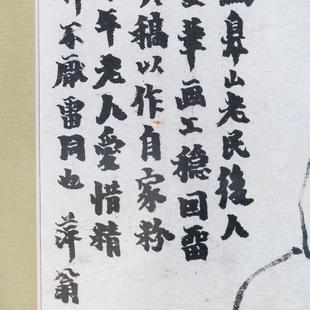 鼻山老民後人
筆画工穩回雷
稿以作自家粉
年老人愛惜精
不厭雷同也 萍翁